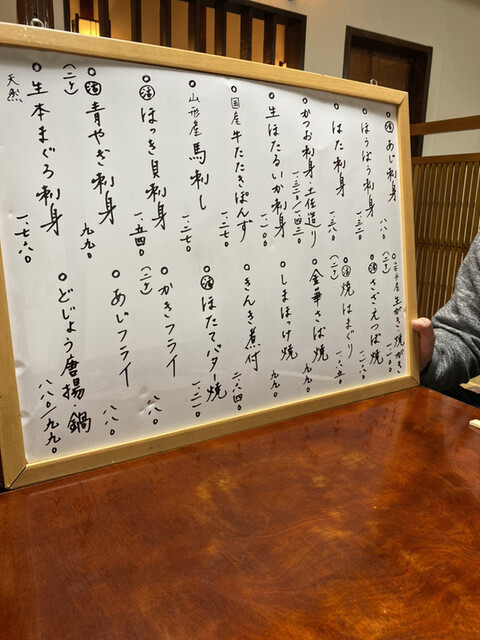 ○活 あじ刺身 八八〇
○ほうぼう刺身 一、三二〇
○はた刺身 一、三八〇
○かつお刺身/土佐造り 一、三二〇/一、四三〇
○生ほたるいか刺身 一、二一〇
○国産牛たたきぽんず 一、三二〇
○山形産馬刺し 一、二七〇
○活 ほっき貝刺身 一、五四〇
(二ケ)
○活 青やぎ刺身 九九〇
(二ケ)
○生本まぐろ刺身 一、七六〇
天然
○岩手産 生がき・焼がき
(二ケ)
○活 さざえつぼ焼 一、一六〇
○活 焼はまぐり
(二ケ)
○金華さば焼 九九〇
○しまほっけ焼 九九〇
○きんき煮付 二、八六〇
○活 ほたてバター焼
○かきフライ 八八〇
(二ケ)
○あじフライ 八八〇
○どじょう唐揚 鍋 八八〇/九九〇